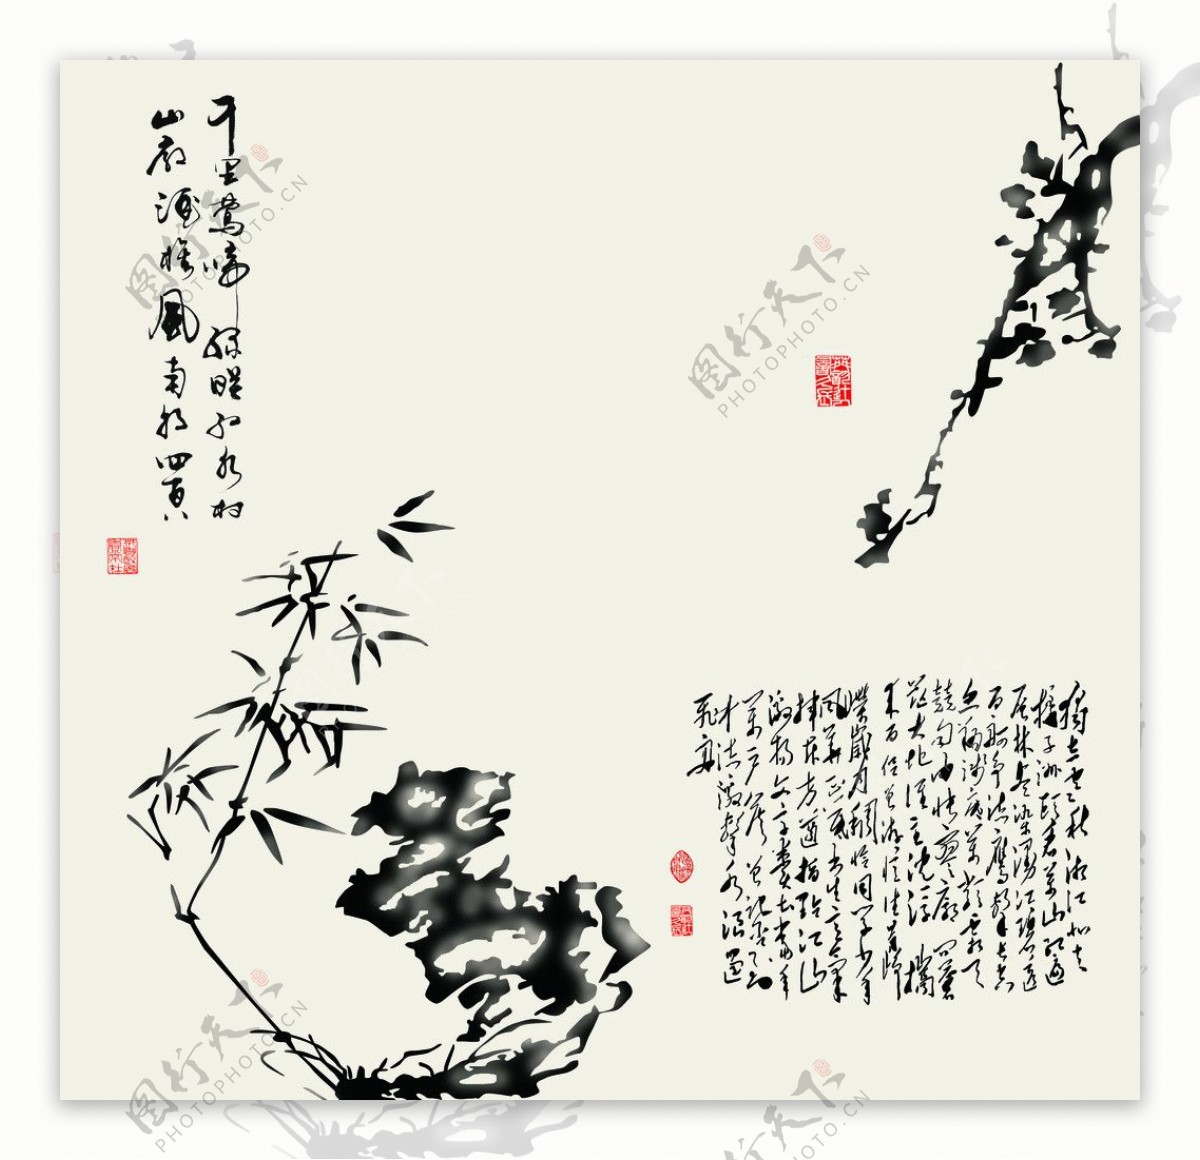 千里莺啼绿映红水村
山郭酒旗風南朝四百八
獨立寒秋湘江北去
橘子洲頭看萬山紅遍
层林尽染漫江碧透
百舸争流鹰击长空
鱼翔浅底萬类霜天
競自由怅寥廓问苍
茫大地谁主沈浮携
来百侣曾游忆往昔峥
嵘歲月稠恰同学少年
風華正茂书生意氣
挥斥方遒指點江山
激扬文字粪土当年
萬户侯曾记否到
中流擊水浪遏
飛舟
图行天下
PHOTOPHOTO.CN
图行天下
PHOTOPHOTO.CN
图行天下
PHOTOPHOTO.CN
图行天下
PHOTOPHOTO.CN